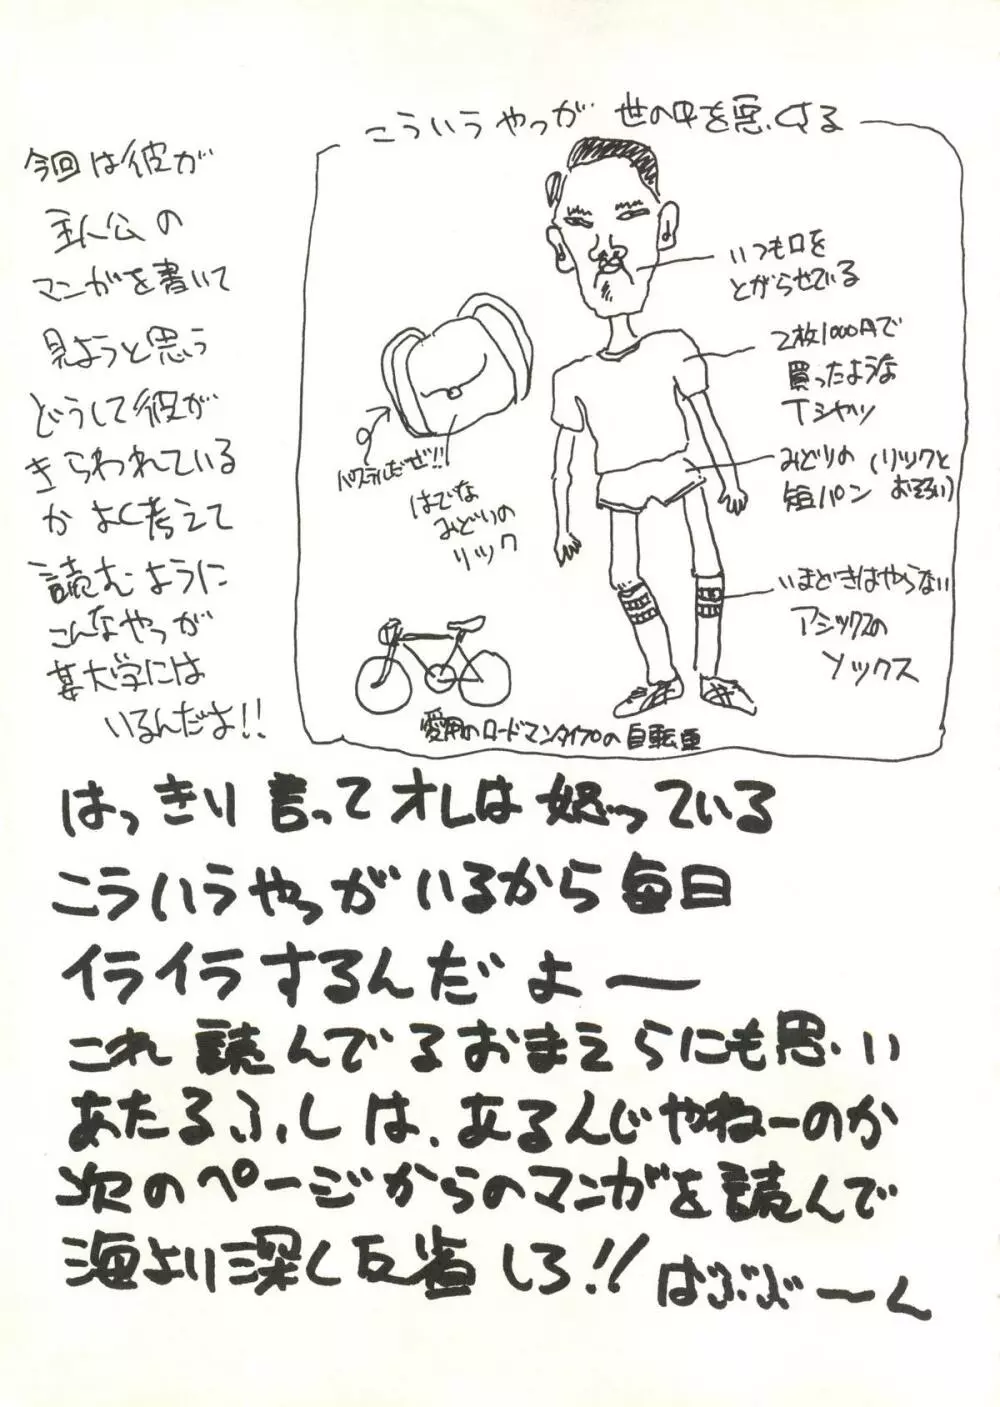 こういうやつが 世の中を悪くする
今回は彼が
主人公の
マンガを書いて
見ようと思う
どうして彼が
きらわれている
かよく考えて
読むように
こんなやつが
某大学には
いるんだよ!!
いつも口を
とがらせている
2枚1000円で
買ったような
Tシャツ
みどりの
短パン
(リックと
おそろい)
いまどきはやらない
アシックスの
ソックス
パステルだぜ!!
はでな
みどりの
リック
愛用のロードマンタイプの自転車
はっきり言ってオレは怒っている
こういうやつがいるから毎日
イライラするんだよー
これ読んでるおまえらにも思い
あたるふしは、あるんじゃねーのか
次のページからのマンガを読んで
海より深く反省しろ!!
はぶぶーん